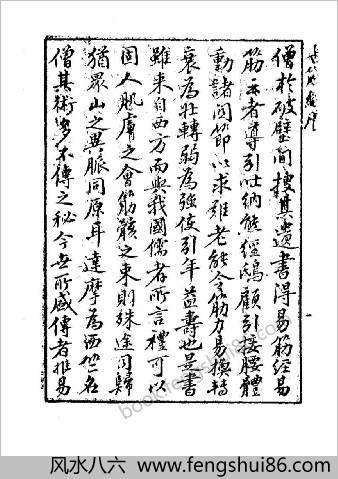 僧於破壁間摟其遺書得易筋經易
筋云者導引吐納能經鴟顧引接腰體
動諸関節以求難老能令筋力易換轉
衰為壮轉弱為強使引年益壽也是書
雖来自西方而與我國儒者所言禮可以
固人肌膚之會筋骸之束則殊途同歸
猶眾山之異脈同原耳達摩為西竺名
僧其術多不傳之秘今世所盛傳者推易
bookfengshui86.com
风水八六 www.fengshui86.com